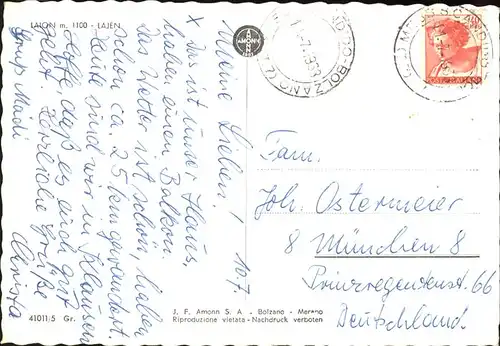 LAION m. 1100 - LAJEN
AMONN
BOLZANO
10.7.
Meine Lieben!
X Das ist unser Haus,
haben einen Balkon.
Das Wetter ist schön, haben
schon ca. 25 km gewandert.
Heute sind wir in Klausen
Hoffe daß es euch gut
geht. Herzliche Grüße
Christa
Fam.
Joh. Ostermeier
8 München 8
Prinzregentenst. 66
Deutschland.
J. F. Amonn S. A. - Bolzano - Merano
Riproduzione vietata - Nachdruck verboten
41011/5 Gr.